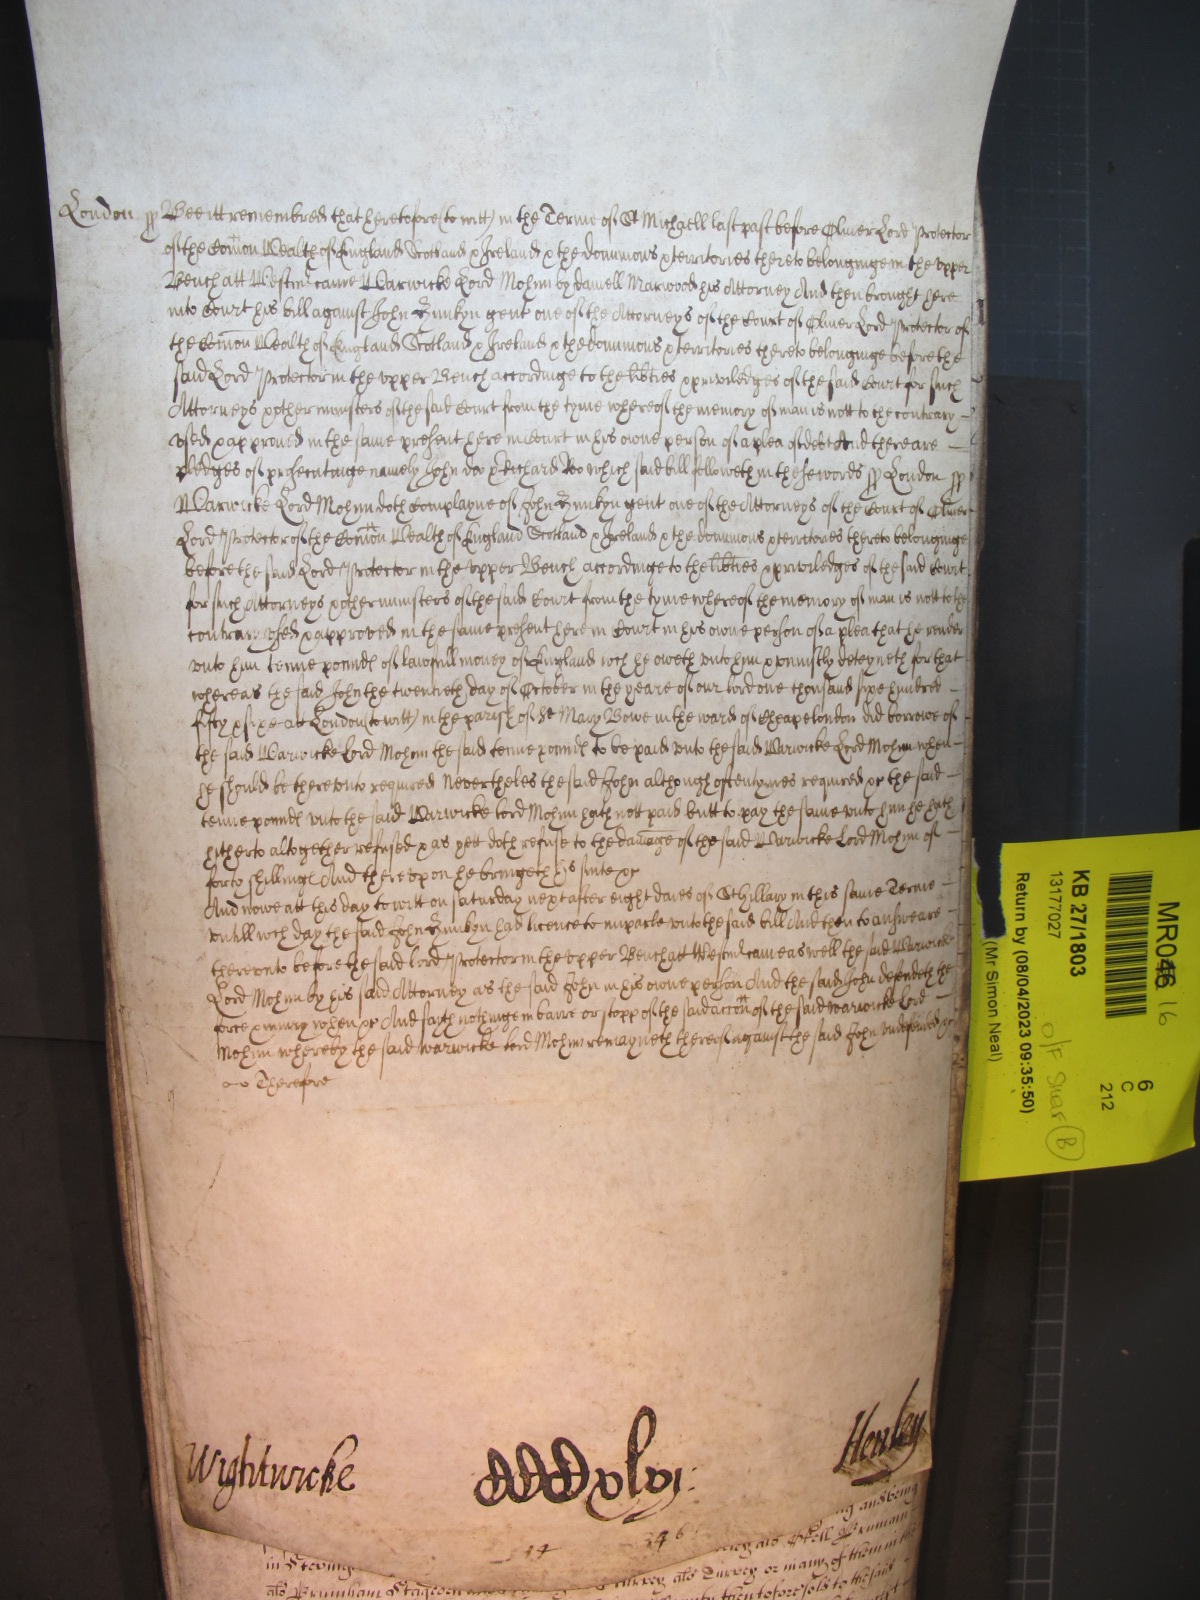 London ss Bee itt remembred that heretofore (to witt) in the Terme of St Michaell last past before Oliver Lord Protector
of the Comon Wealth of England Scotland & Ireland & the dominions & territories thereto belonginge in the upper
Bench att Westmr came Warwicke Lord Mohun by daniell Marwood his Attorney And then brought here
into Court his bill against John gent one of the Attorneys of the Court of Oliver Lord Protector of
the Comon Wealth of England Scotland & Ireland & the dominions & territories thereto belonginge before the
said Lord Protector in the upper Bench accordinge to the libties & priviledges of the said Court for such
Attorneys & other ministers of the said Court from the tyme whereof the memory of man is nott to the contrary
used & approved in the same present here in Court in his owne person of a plea of debt And there are
pledges of prosecutinge namely John doo & Richard Roo which said bill followeth in these words ss London ss
Warwicke Lord Mohun doth Complayne of John gent one of the Attorneys of the Court of Oliver
Lord Protector of the Comon Wealth of England Scotland & Ireland & the dominions & territories thereto belonginge
before the said Lord Protector in the upper Bench accordinge to the libties & priviledges of the said Court
for such Attorneys & other ministers of the said Court from the tyme whereof the memory of man is nott to the
contrary used & approved in the same present here in Court in his owne person of a plea that he render
unto him tenne pounds of lawfull money of England wch he oweth unto him & uniustly deteyneth for that
whereas the said John the twentieth day of October in the yeare of our lord one thousand sixe hundred
fifty & sixe att London (to witt) in the parish of St Mary Bowe in the ward of Cheape london did borrowe of
the said Warwicke Lord Mohun the said tenne pounds to be paid unto the said Warwicke Lord Mohun when
he should be thereunto required Nevertheles the said John although oftentymes required &c the said
tenne pounds unto the said Warwicke lord Mohun hath nott paid butt to pay the same unto him he hath
hitherto altogether refused & as yett doth refuse to the damage of the said Warwicke Lord Mohun of
forty shillings And thereupon he bringeth his suite &c
And nowe att this day to witt on saturday next after eight daies of St Hillary in this same Terme
untill wch day the said John had licence to imparle unto the said bill And then to answeare
thereunto before the said lord Protector in the upper Bench att Westmr came as well the said Warwicke
Lord Mohun by his said Attorney as the said John in his owne person And the said John defendeth the
force & iniury when &c And saith nothinge in barre or stopp of the said accon of the said warwicke Lord
Mohun whereby the said warwicke lord Mohun remayneth thereof against the said John undefended &c
Therefore
Wightwicke
Henley
346
MR046 16
KB 27/1803
13177027
Return by (08/04/2023 09:35:50)
(Mr Simon Neal)
6
C
212
O/F
B